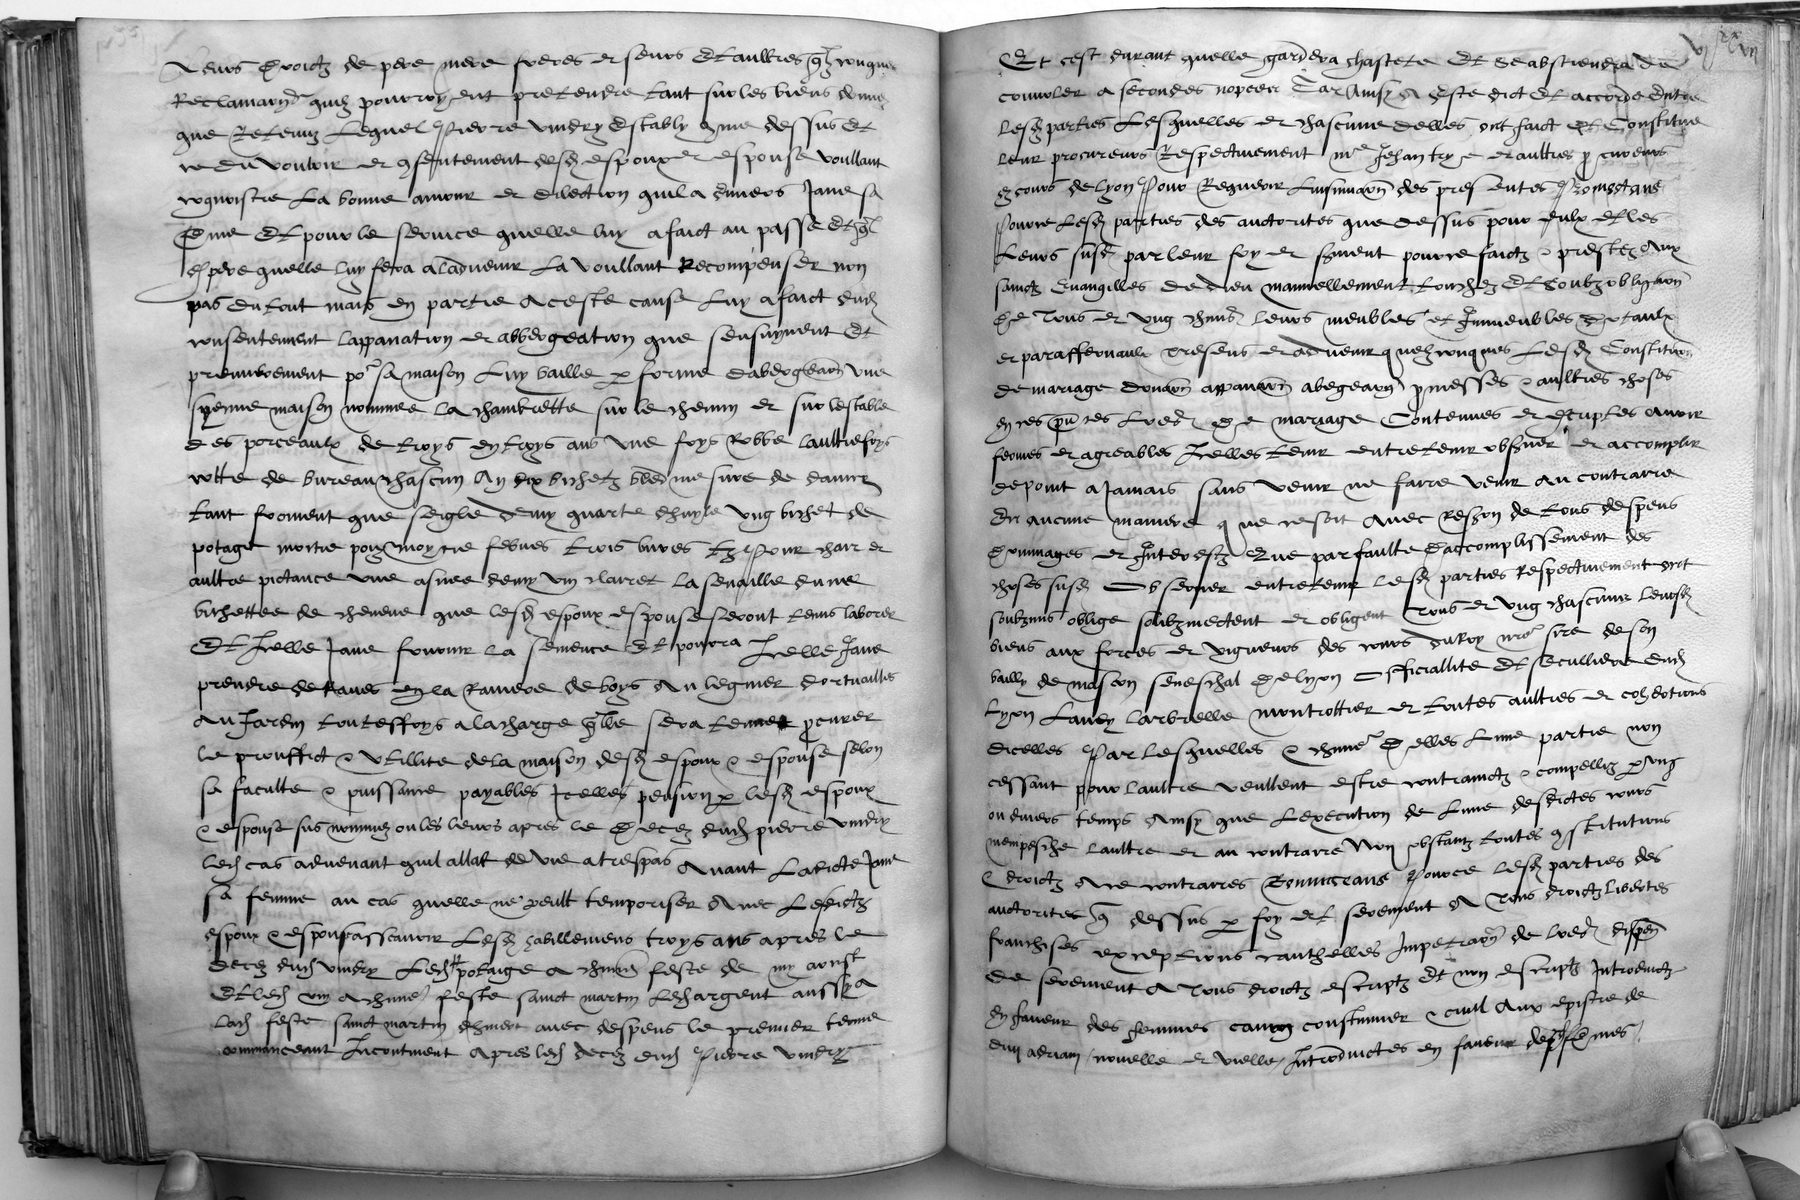 leurs droictz de pere mere freres et seurs et aultres
que pourroyent pretendre tant sur les biens
que lequel Pierre Vindry estably come dessus et
du voulloir et consentement desd espoux et espouse voullant
recognoistre la bonne amour et dilection quil a envers Jane sa
feme et pour le service quelle luy a faict au passe et
espere quelle luy fera a ladvenir la voullant recompenser non
pas du tout mais en partie a ceste cause luy a faict dud
consentement lappanation et abbergeation que sensuyvent et
premierement por sa maison luy baille par forme dabergeaon une
sienne maison nommee la chambrette sur le chemin et sur lestable
des porceaulx de troys en troys ans une foys robbe laultre foys
cotte de bureau chascun an dix bichetz bled mesure de
tant froment que seigle demy quarte dhuyle ung bichet de
potage moitie poyz moytie febves trois livres tz pour chair et
aultre pictance une asnee demy vin clairet la semaille dune
bichettee de cheneve que lesd espoux espouse seront tenus laborer
et icelle Jane fournir la semence et pourra icelle Jane
prendre de raves en la raviere de boys au legnier dortuailles
au jardin touteffoys a la charge quelle sera tenue procurer
le prouffict & utillite de la maison desd espoux & espouse selon
sa faculte & puissance payables icelles pension par lesd espoux
& espouse sus nommez ou les leurs apres le decez dud pierre vindry
led cas advenant quil allat de vie a trespas avant ladicte Jane
sa femme au cas quelle ne peult temporiser avec lesdictz
espoux & espouse assavoir lesd habillemens troys ans apres le
decez dud vindry led potaige a chune feste de my aoust
et led vin a chune feste sainct martin led argent aussy a
lad feste sainct martin avec despens le premier terme
commanceant incontinent apres led decez dud Pierre Vindry
Et cest durant quelle gardera chastete et se abstiendra de
convoler a secondes nopces Car ainsy a este dict et accorde entre
lesd parties lesquelles et chascune delles ont faict et constitue
leur procureurs respectivement me Jehan et aultres procureurs
es cours de lyon pour requerir linsinuaon des presentes Promectans
pource lesd parties des auctorites que dessus pour eulx et les
leurs susd par leur foy et serment pource faictz & prestez aux
sainctz evangilles de dieu manuellement touchez et soubz obligaon
de tous et ung chascuns leurs meubles et immeubles dotaulx
et paraffernaulx presens et advenir quelzconques lesd constitution
de mariage donaon appanaon abegeaon promesses & aultres choses
en ces pntes lres de mariage contenues et escriptes avoir
fermes et agreables icelles tenir entretenir observer et accomplir
de point a jamais sans venir ne faire venir au contraire
en aucune maniere que ce soit avec restion de tous despens
dommages et interestz que par faulte daccomplissement des
choses susd observer entretenir lesd parties respectivement ont
soubzmis oblige soubzmectent et obligent tous et ung chascuns leursd
biens aux forces et vigueurs des cours du Roy nre sire de son
bailly de mascon seneschal de lyon officiallite et seculliere dud
lyon larbrelle montrottier et toutes aultres et cohertions
dicelles par lesquelles & chune delles lune partie non
cessant pour laultre veullent estre contrainctz & compellis par ung
ou divers temps ainsy que lexecution de lune desdictes cours
nempesche laultre et au contraire non obstantz toutes constitutions
& droictz a ce contraires Renuncans pource lesd parties des
auctorites que dessus par foy et serement a tous droictz libertes
franchises exceptions cauthelles impetraon de lres dispen
de serement a tous droictz escriptz et non escriptz introduictz
en faveur des femmes canon constumier & civil aux epistre de
divi adriani nouvelle et vielle introductes en faveur desd femmes